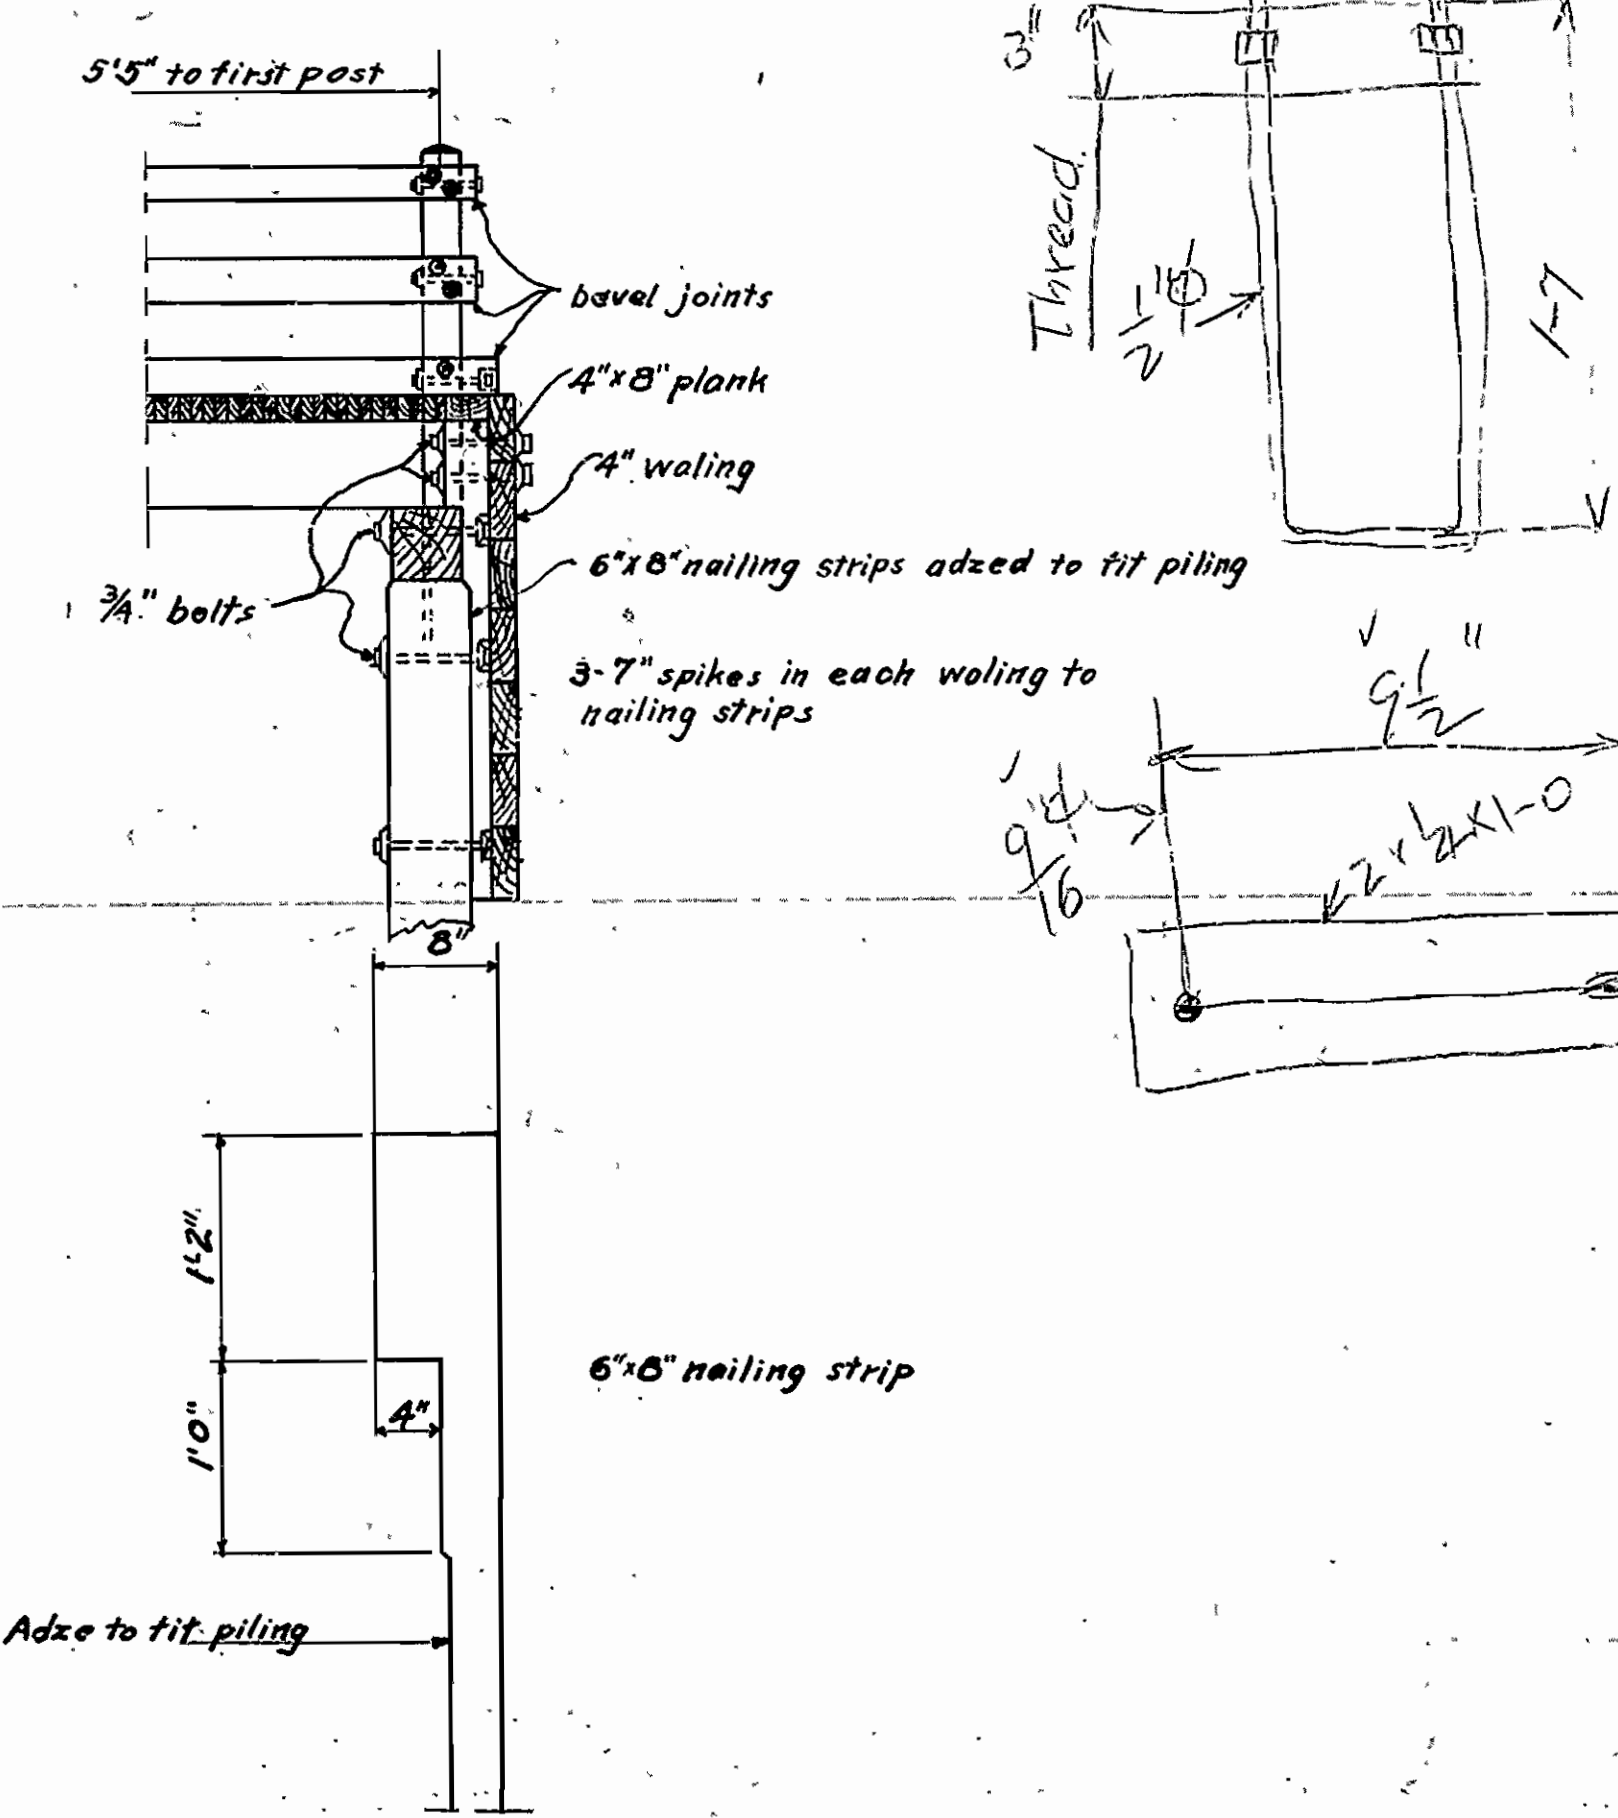 5'5" to first post
bevel joints
4"x8" plank
4" waling
6"x8" nailing strips adzed to fit piling
3/4" bolts
3-7" spikes in each woling to
nailing strips
8"
1'-2"
4"
1'0"
6"x8" nailing strip
Adze to fit piling
3"
Thread.
1/2"ϕ
1-7
9 1/2"
9/16"ϕ
2 x 1/4 x 1-0